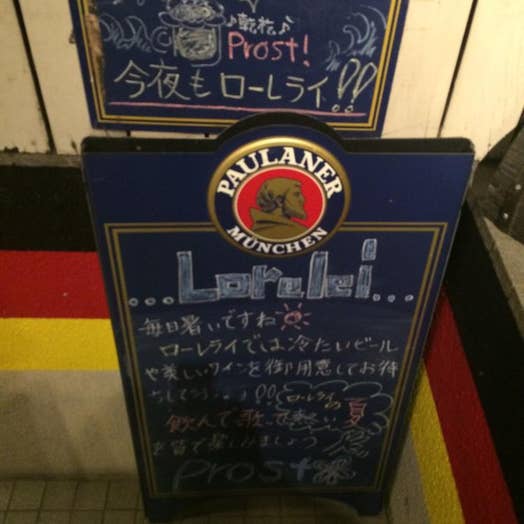 ♪乾杯♪
Prost!
今夜もローレライ!!
PAULANER
MÜNCHEN
...Lorelei...
毎日暑いですね
ローレライでは冷たいビール
や美しいワインを御用意してお待
ちしてます♪!! ローレライの
飲んで歌って 夏
を皆で楽しみましょう
prost